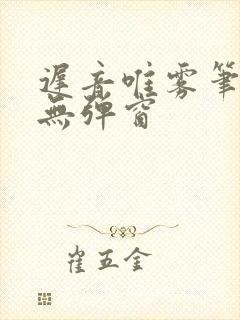 遲音唯雾筆
無弹窗
崔五金